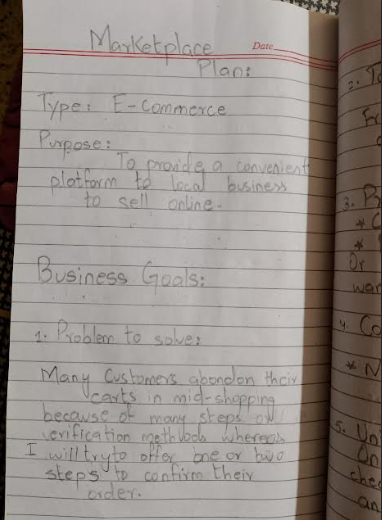 Marketplace
Date
Plan:
Type: E-Commerce
Purpose:
To provide a convenient
platform to local business
to sell online.
Business Goals:
1. Problem to solve:
Many Customers abondon their
carts in mid-shopping
because of many steps or
verification methods whereas
I will try to offer one or two
steps to confirm their
order.
3.
4. Co
5. Uni
On
che
an